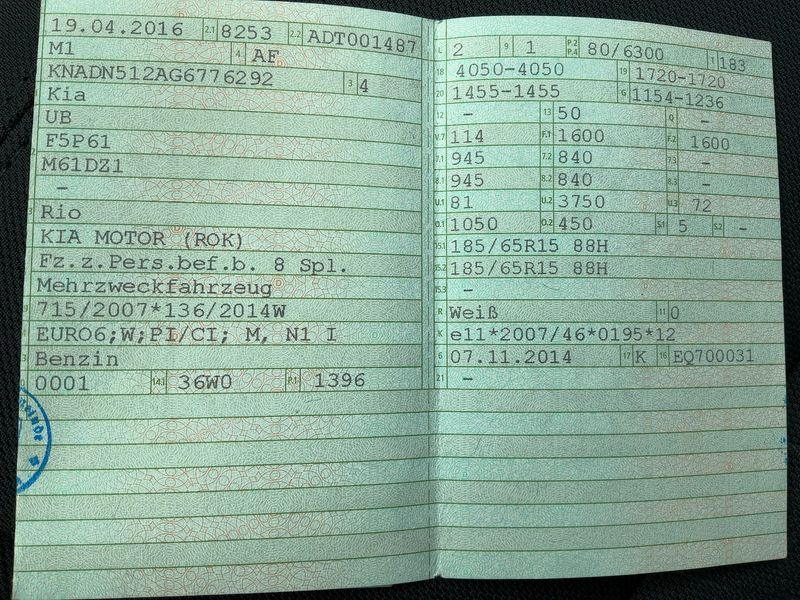 19.04.2016 2.1 8253 2.2 ADT001487
M1 4 AF
KNADN512AG6776292 3 4
Kia
UB
F5P61
M61DZ1
–
Rio
KIA MOTOR (ROK)
Fz.z.Pers.bef.b. 8 Spl.
Mehrzweckfahrzeug
715/2007*136/2014W
EURO6;W;PI/CI; M, N1 I
Benzin
0001 14.1 36W0 P.1 1396
L 2 9 1 P.2 P.4 80/6300 T 183
18 4050-4050 19 1720-1720
20 1455-1455 G 1154-1236
12 – 13 50 Q –
V.7 114 F.1 1600 F.2 1600
7.1 945 7.2 840 7.3 –
8.1 945 8.2 840 8.3 –
U.1 81 U.2 3750 U.3 72
O.1 1050 O.2 450 S.1 5 S.2 –
15.1 185/65R15 88H
15.2 185/65R15 88H
15.3 –
R Weiß 11 0
K e11*2007/46*0195*12
6 07.11.2014 17 K 16 EQ700031
21 –